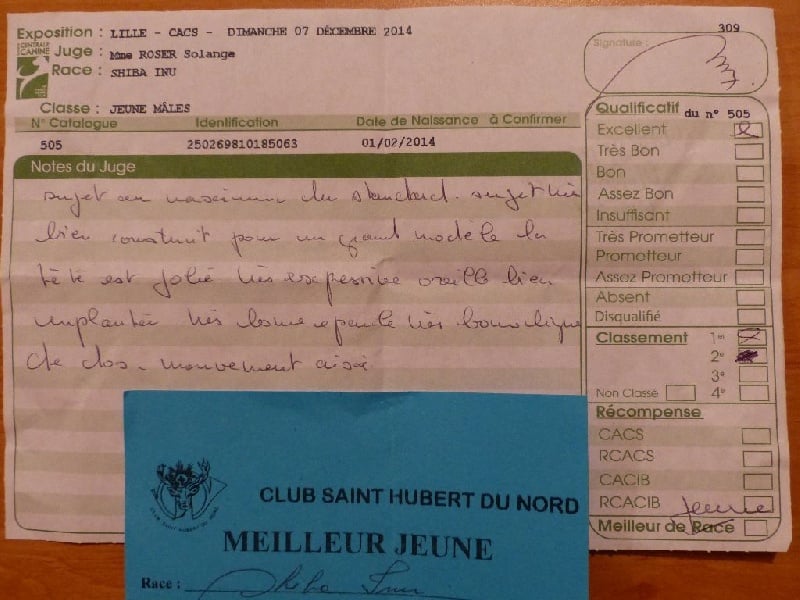 309
Exposition : LILLE - CACS - DIMANCHE 07 DÉCEMBRE 2014
CENTRALE CANINE
Juge : Mme ROSER Solange
Race : SHIBA INU
Classe : JEUNE MÂLES
N° Catalogue Identification Date de Naissance à Confirmer
505 250269810185063 01/02/2014
Notes du Juge
sujet au maximum du standard. sujet très
bien construit pour un grand modèle la
tête est jolie très expressive oreille bien
implantée très bonne épaule très bonne ligne
de dos. mouvement aisé
Signature :
Qualificatif du n° 505
Excellent
Très Bon
Bon
Assez Bon
Insuffisant
Très Prometteur
Prometteur
Assez Prometteur
Absent
Disqualifié
Classement 1er
2e
3e
Non Classé 4e
Récompense
CACS
RCACS
CACIB
RCACIB
jeune
Meilleur de Race
CLUB SAINT HUBERT DU NORD
CLUB SAINT HUBERT DU NORD
MEILLEUR JEUNE
Race : Shiba Inu